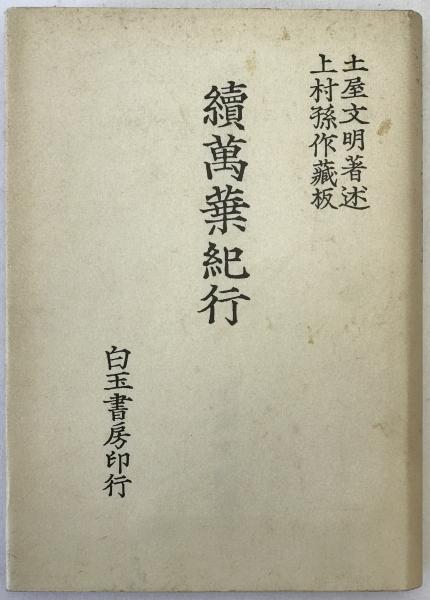 土屋文明著述
上村孫作藏板
續萬葉紀行
白玉書房印行